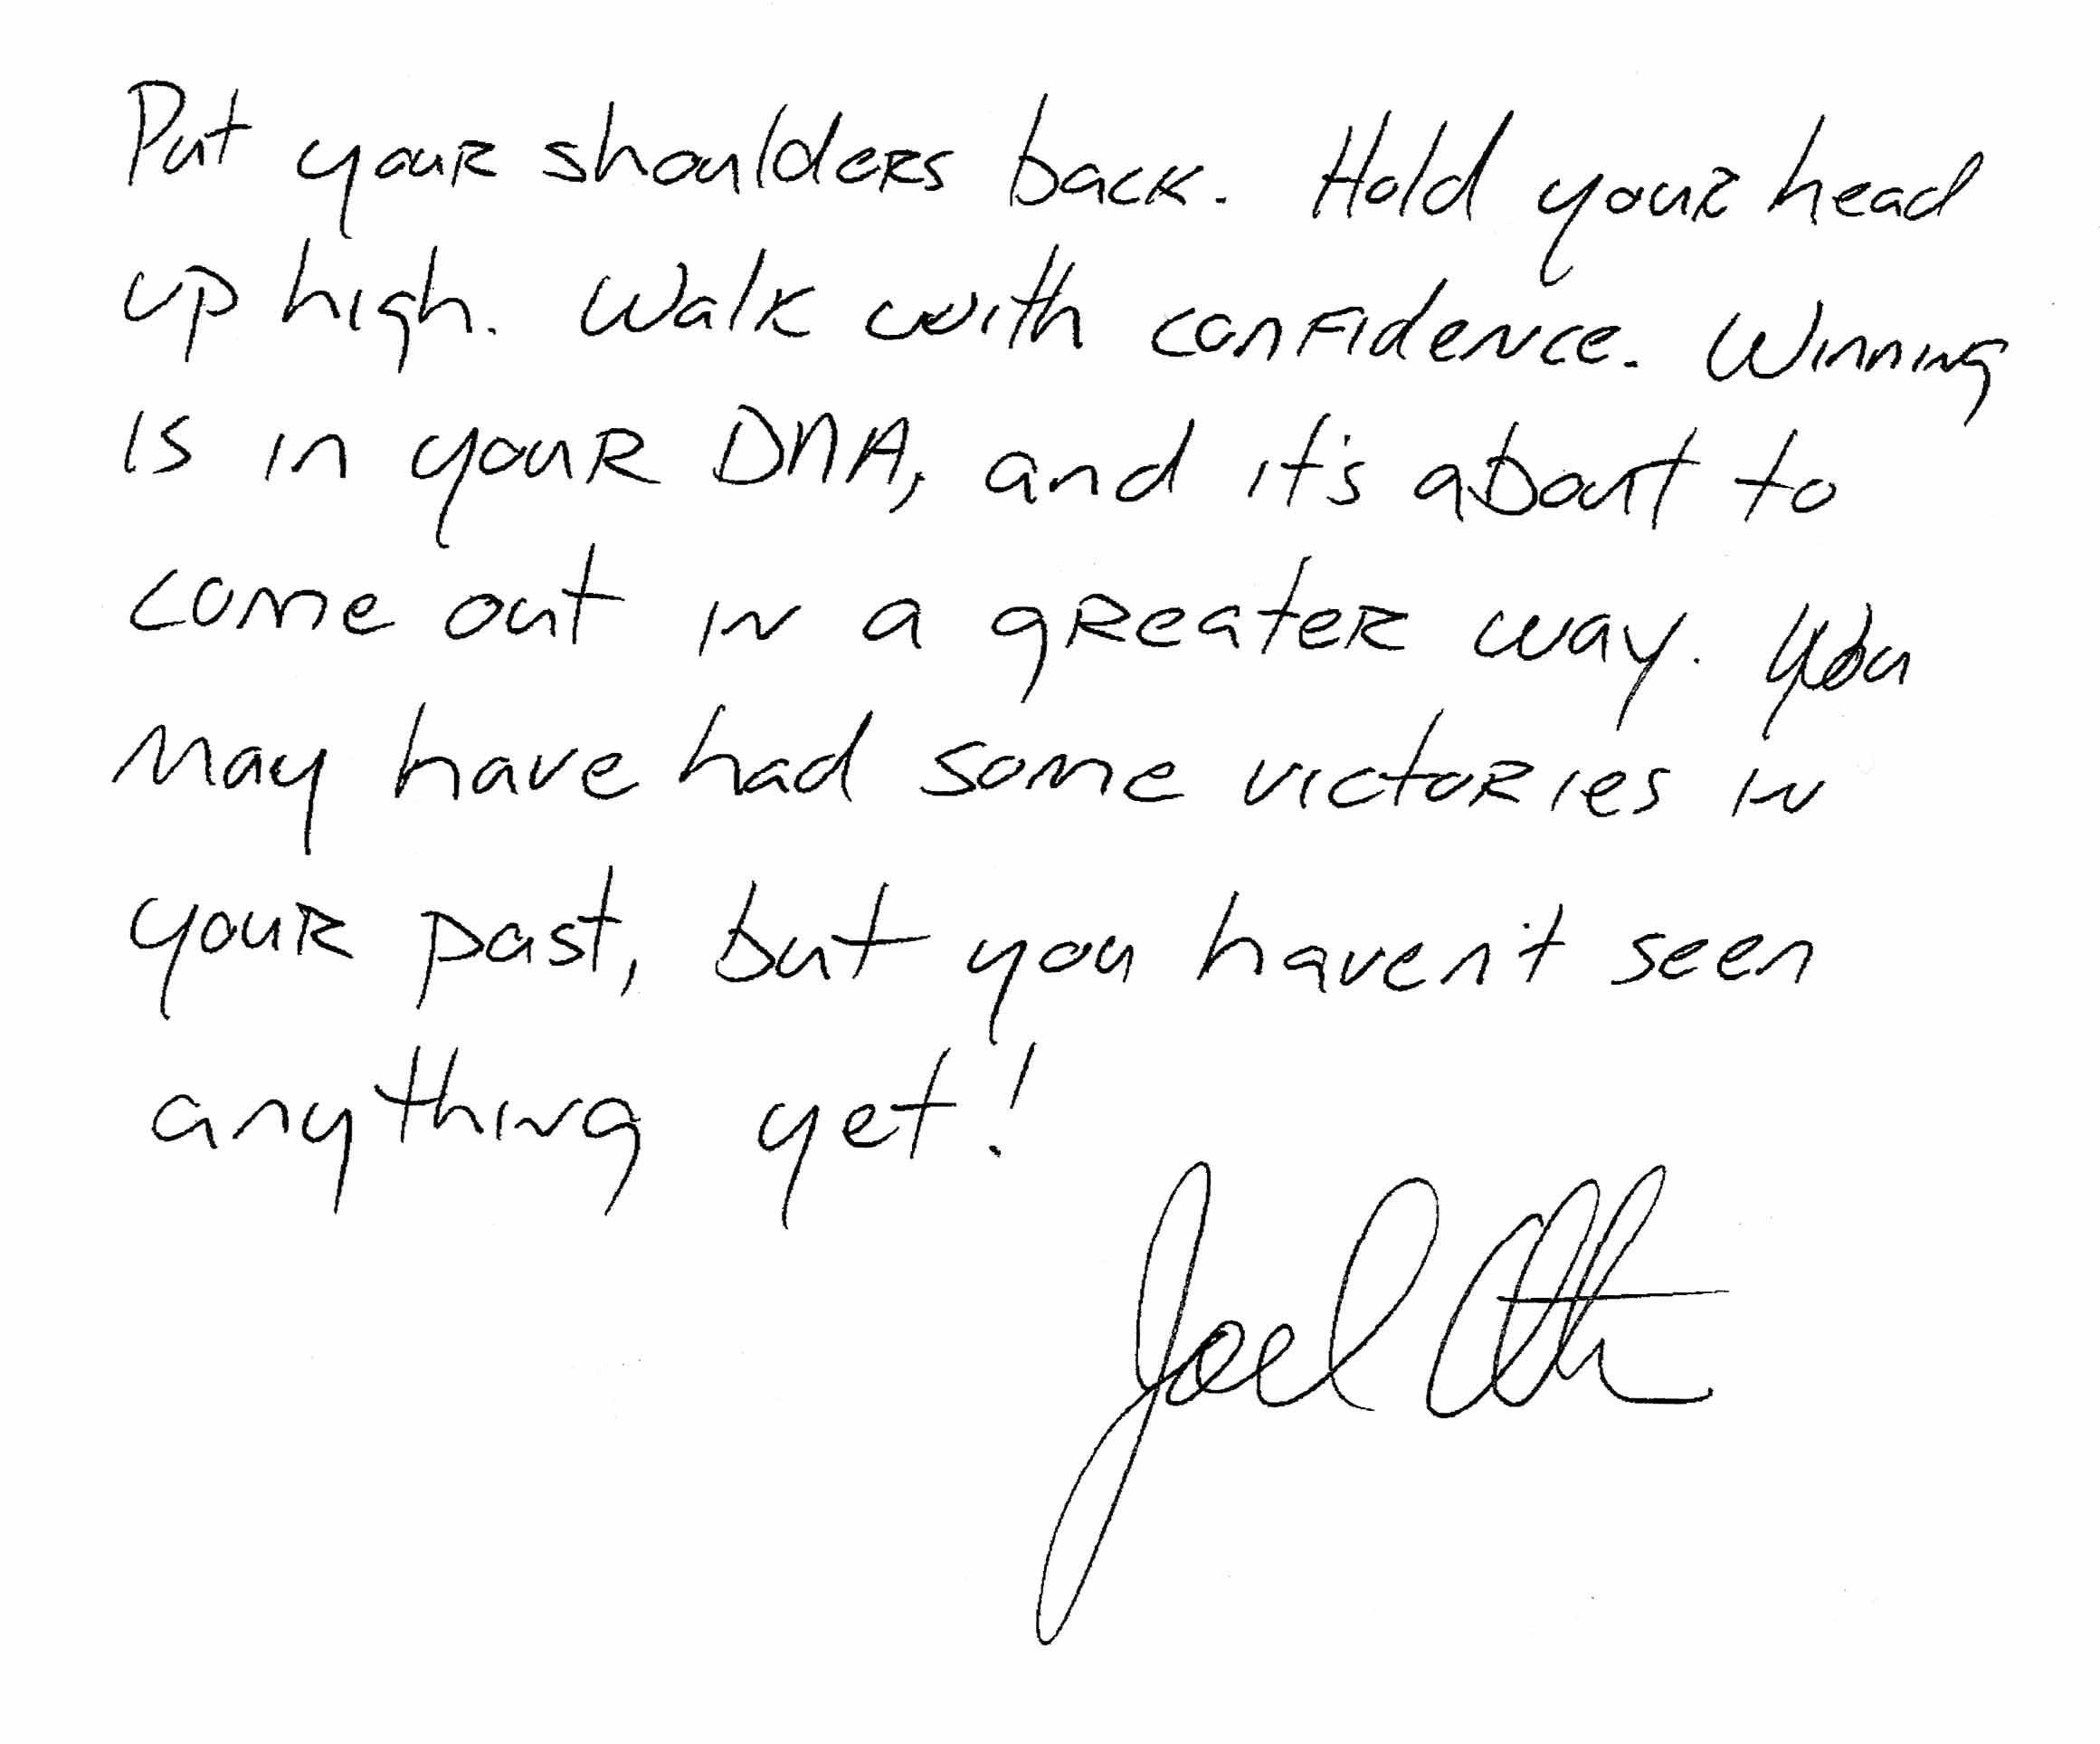 Put your shoulders back. Hold your head
up high. Walk with confidence. Winning
is in your DNA, and it's about to
come out in a greater way. You
may have had some victories in
your past, but you haven't seen
anything yet!
Joel